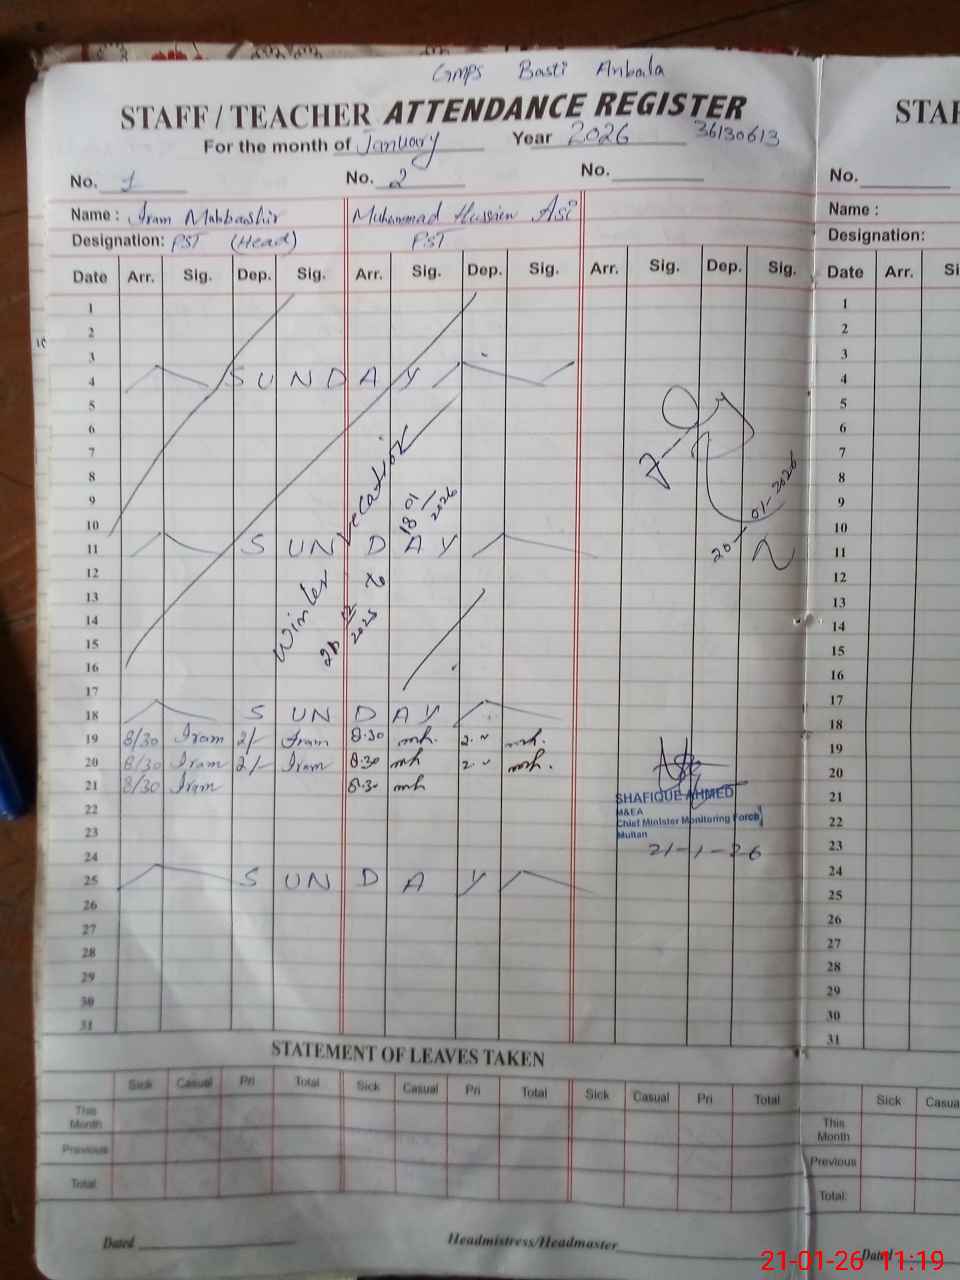 GMPS Basti Anbala
STAFF / TEACHER ATTENDANCE REGISTER STAF
For the month of January Year 2026 36130613
No. 1 No. 2 No. No.
Name : Iram Mubbashir Muhammad Hussien Asi Name :
Designation: PST (Head) PST Designation:
Date Arr. Sig. Dep. Sig. Arr. Sig. Dep. Sig. Arr. Sig. Dep. Sig. Date Arr. Si
1 1
2 2
3 3
4 SUNDAY 4
5 5
6 6
7 7
8 8
9 9
10 10
11 SUNDAY 11
12 12
13 13
14 14
15 15
16 16
17 17
18 SUNDAY 18
Winter Vecation
12 2025 to 18 01 2026
20-01-2026
19 8/30 Iram 2/- Iram 8.30 mh. 2.00 mh. 19
20 8/30 Iram 2/- Iram 8.30 mh 2.00 mh. 20
21 8/30 Iram 8.30 mh 21
SHAFIQUE AHMED
M&EA
Chief Minister Monitoring Force
Multan
21-1-26
22 22
23 23
24 24
25 SUNDAY 25
26 26
27 27
28 28
29 29
30 30
31 31
STATEMENT OF LEAVES TAKEN
Sick Casual Pri Total Sick Casual Pri Total Sick Casual Pri Total Sick Casua
This Month This Month
Previous Previous
Total Total:
Dated Headmistress/Headmaster Dated
21-01-26 11:19